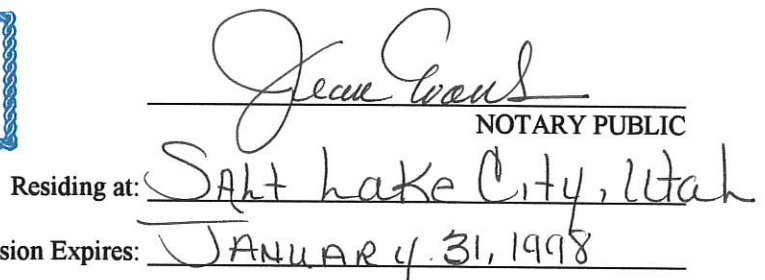 Jean Evans
NOTARY PUBLIC
Residing at: SAlt Lake City, Utah
sion Expires: JANUARY 31, 1998